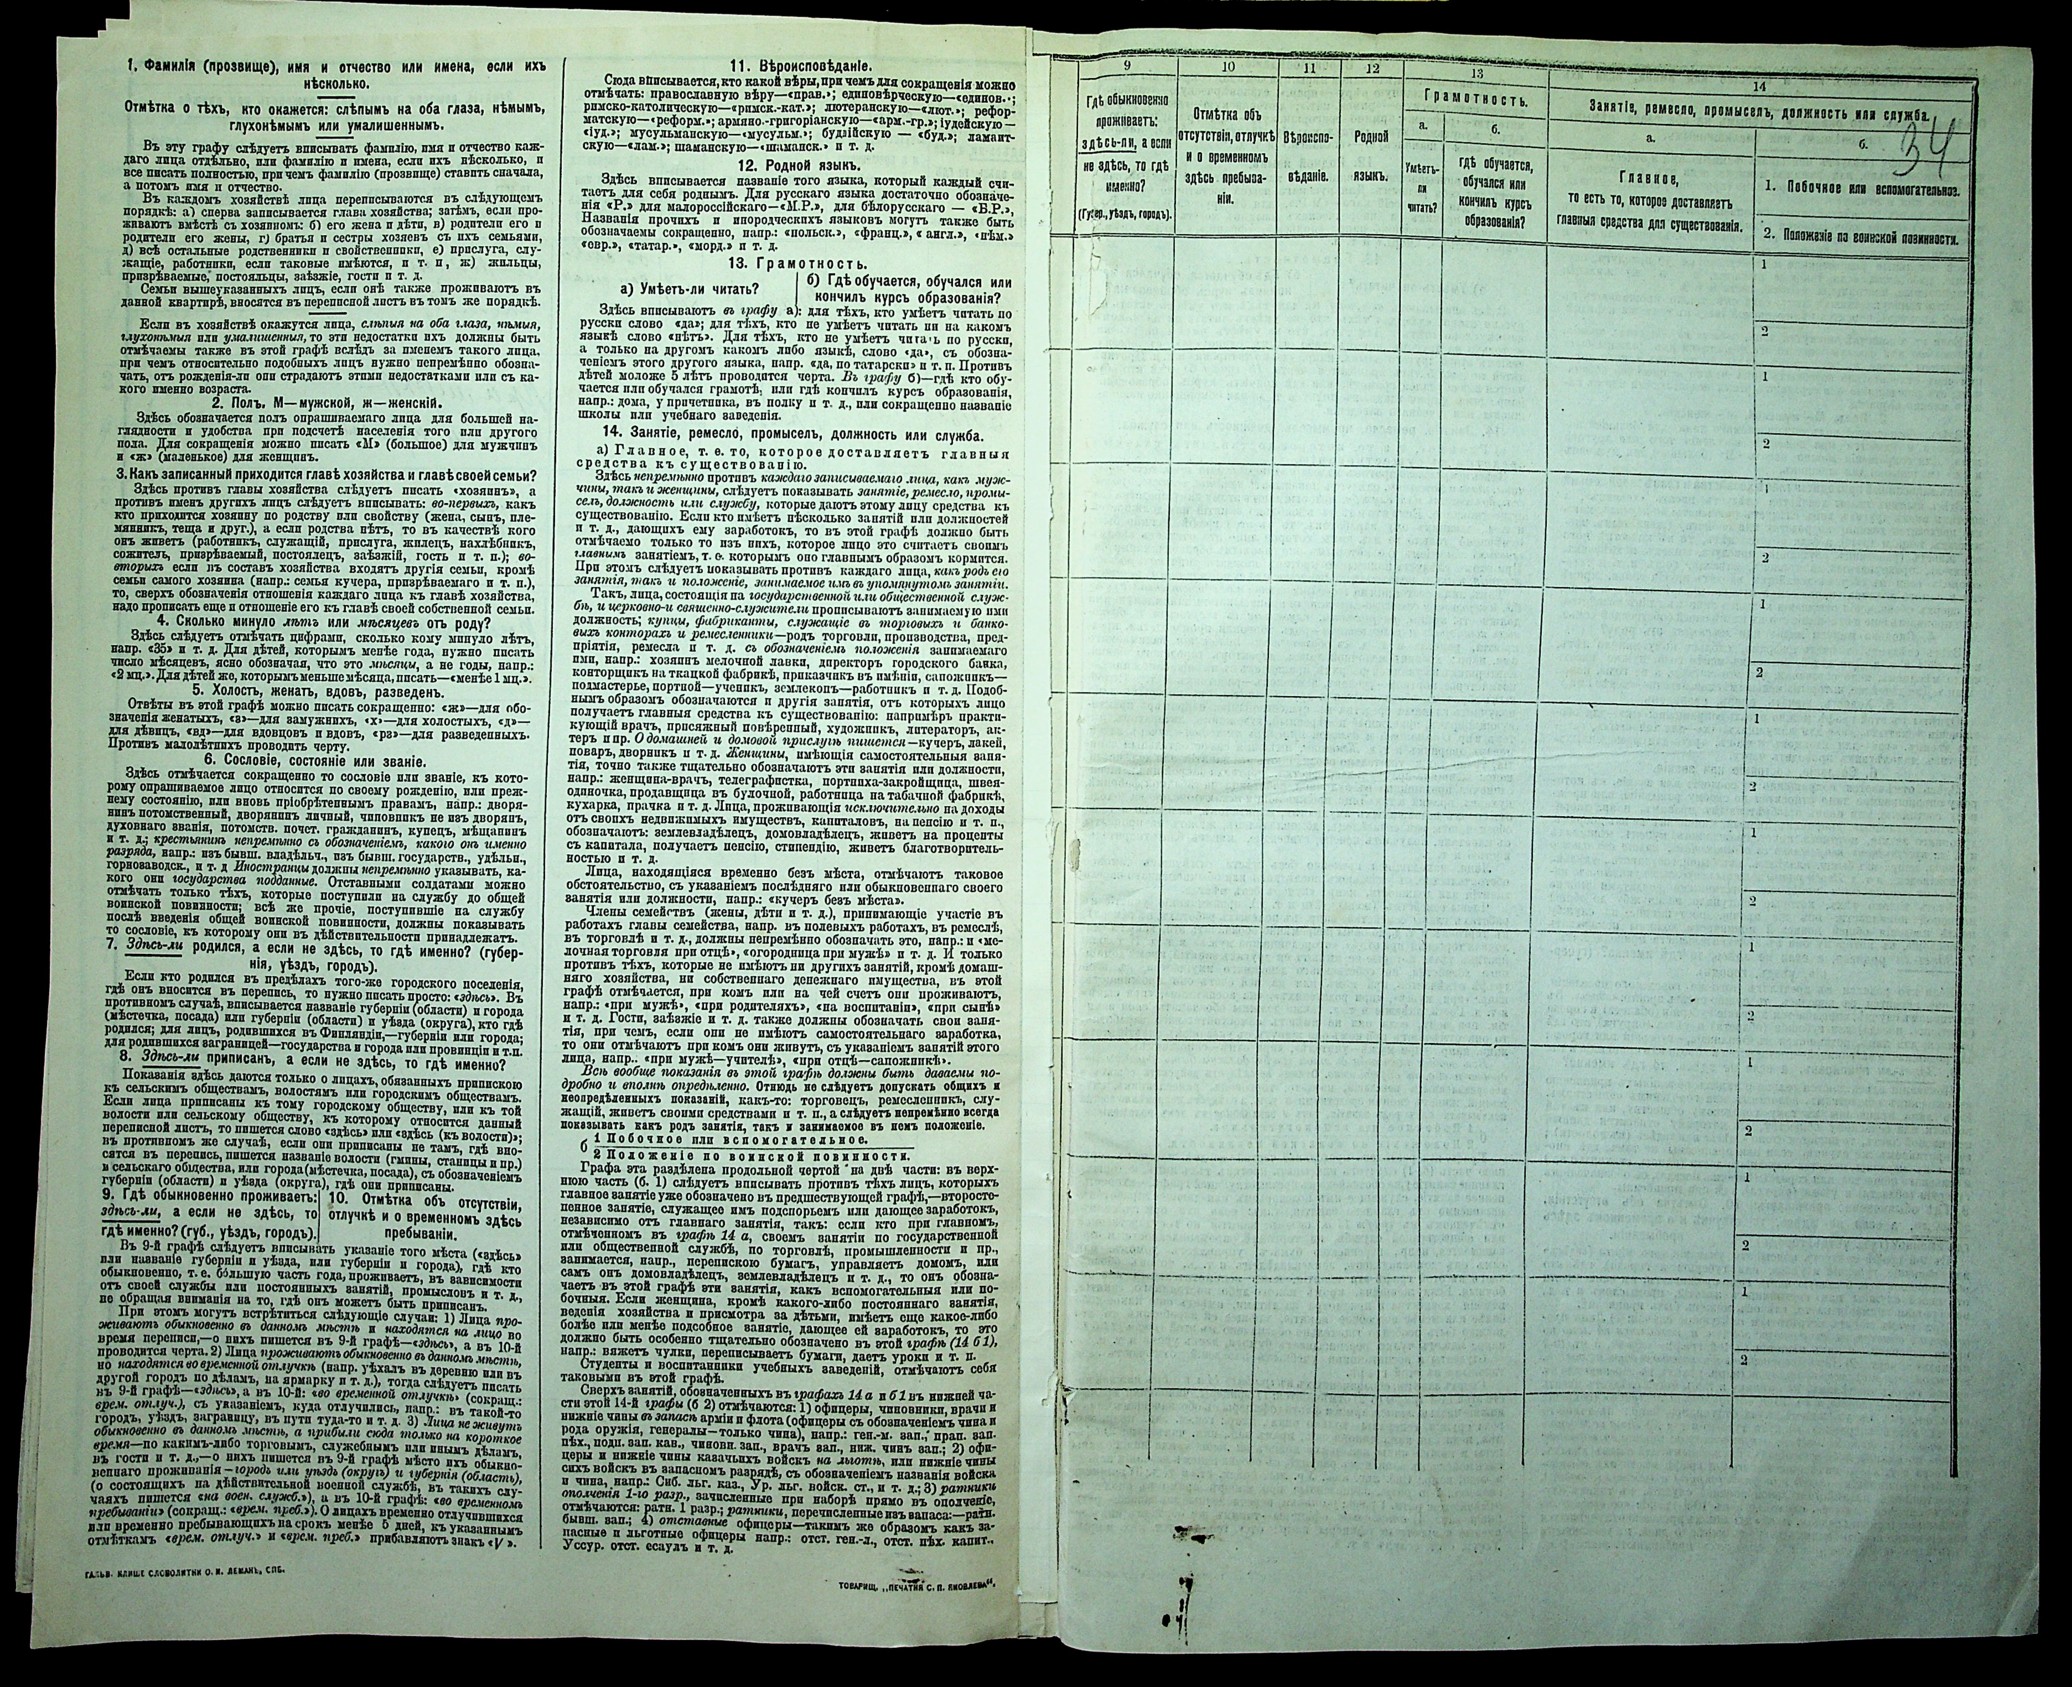 1. Фамилія (прозвище), имя и отчество или имена, если ихъ
нѣсколько.
Отмѣтка о тѣхъ, кто окажется: слѣпымъ на оба глаза, нѣмымъ,
глухонѣмымъ или умалишеннымъ.
Въ эту графу слѣдуетъ вписывать фамилію, имя и отчество каж-
даго лица отдѣльно, или фамилію и имена, если ихъ нѣсколько, и
все писать полностью, при чемъ фамилію (прозвище) ставить сначала,
а потомъ имя и отчество.
Въ каждомъ хозяйствѣ лица переписываются въ слѣдующемъ
порядкѣ: а) сперва записывается глава хозяйства; затѣмъ, если про-
живаютъ вмѣстѣ съ хозяиномъ: б) его жена и дѣти, в) родители его и
родители его жены, г) братья и сестры хозяевъ съ ихъ семьями,
д) всѣ остальные родственники и свойственники, е) прислуга, слу-
жащіе, работники, если таковые имѣются, и т. п, ж) жильцы,
призрѣваемые, постояльцы, заѣзжіе, гости и т. д.
Семьи вышеуказанныхъ лицъ, если онѣ также проживаютъ въ
данной квартирѣ, вносятся въ переписной листъ въ томъ же порядкѣ.
Если въ хозяйствѣ окажутся лица, слѣпыя на оба глаза, нѣмыя,
глухонѣмыя или умалишенныя, то эти недостатки ихъ должны быть
отмѣчаемы также въ этой графѣ вслѣдъ за именемъ такого лица,
при чемъ относительно подобныхъ лицъ нужно непремѣнно обозна-
чать, отъ рожденія-ли они страдаютъ этими недостатками или съ ка-
кого именно возраста.
2. Полъ. М—мужской, ж—женскій.
Здѣсь обозначается полъ опрашиваемаго лица для большей на-
глядности и удобства при подсчетѣ населенія того или другого
пола. Для сокращенія можно писать «М» (большое) для мужчинъ
и «ж» (маленькое) для женщинъ.
3. Какъ записанный приходится главѣ хозяйства и главѣ своей семьи?
Здѣсь противъ главы хозяйства слѣдуетъ писать «хозяинъ», а
противъ именъ другихъ лицъ слѣдуетъ вписывать: во-первыхъ, какъ
кто приходится хозяину по родству или свойству (жена, сынъ, пле-
мянникъ, теща и друг.), а если родства нѣтъ, то въ качествѣ кого
онъ живетъ (работникъ, служащій, прислуга, жилецъ, нахлѣбникъ,
сожитель, призрѣваемый, постоялецъ, заѣзжій, гость и т. п.); во-
вторыхъ если въ составъ хозяйства входятъ другія семьи, кромѣ
семьи самого хозяина (напр.: семья кучера, призрѣваемаго и т. п.),
то, сверхъ обозначенія отношенія каждаго лица къ главѣ хозяйства,
надо прописать еще и отношеніе его къ главѣ своей собственной семьи.
4. Сколько минуло лѣтъ или мѣсяцевъ отъ роду?
Здѣсь слѣдуетъ отмѣчать цифрами, сколько кому минуло лѣтъ,
напр. «35» и т. д. Для дѣтей, которымъ менѣе года, нужно писать
число мѣсяцевъ, ясно обозначая, что это мѣсяцы, а не годы, напр.:
«2 мц.». Для дѣтей же, которымъ меньше мѣсяца, писать—«менѣе 1 мц.».
5. Холостъ, женатъ, вдовъ, разведенъ.
Отвѣты въ этой графѣ можно писать сокращенно: «ж»—для обо-
значенія женатыхъ, «з»—для замужнихъ, «х»—для холостыхъ, «д»—
для дѣвицъ, «вд»—для вдовцовъ и вдовъ, «рз»—для разведенныхъ.
Противъ малолѣтнихъ проводить черту.
6. Сословіе, состояніе или званіе.
Здѣсь отмѣчается сокращенно то сословіе или званіе, къ кото-
рому опрашиваемое лицо относится по своему рожденію, или преж-
нему состоянію, или вновь пріобрѣтеннымъ правамъ, напр.: дворя-
нинъ потомственный, дворянинъ личный, чиновникъ не изъ дворянъ,
духовнаго званія, потомств. почет. гражданинъ, купецъ, мѣщанинъ
и т. д.; крестьянинъ непремѣнно съ обозначеніемъ, какого онъ именно
разряда, напр.: изъ бывш. владѣльч., изъ бывш. государств., удѣльн.,
горнозаводск., и т. д Иностранцы должны непремѣнно указывать, ка-
кого они государства подданные. Отставными солдатами можно
отмѣчать только тѣхъ, которые поступили на службу до общей
воинской повинности; всѣ же прочіе, поступившіе на службу
послѣ введенія общей воинской повинности, должны показывать
то сословіе, къ которому они въ дѣйствительности принадлежатъ.
7. Здѣсь-ли родился, а если не здѣсь, то гдѣ именно? (губер-
нія, уѣздъ, городъ).
Если кто родился въ предѣлахъ того-же городского поселенія,
гдѣ онъ вносится въ перепись, то нужно писать просто: «здѣсь». Въ
противномъ случаѣ, вписывается названіе губерніи (области) и города
(мѣстечка, посада) или губерніи (области) и уѣзда (округа), кто гдѣ
родился; для лицъ, родившихся въ Финляндіи,—губерніи или города;
для родившихся заграницей—государства и города или провинціи и т.п.
8. Здѣсь-ли приписанъ, а если не здѣсь, то гдѣ именно?
Показанія здѣсь даются только о лицахъ, обязанныхъ припискою
къ сельскимъ обществамъ, волостямъ или городскимъ обществамъ.
Если лица приписаны къ тому городскому обществу, или къ той
волости или сельскому обществу, къ которому относится данный
переписной листъ, то пишется слово «здѣсь» или «здѣсь (къ волости)»;
въ противномъ же случаѣ, если они приписаны не тамъ, гдѣ вно-
сятся въ перепись, пишется названіе волости (гмины, станицы и пр.)
и сельскаго общества, или города (мѣстечка, посада), съ обозначеніемъ
губерніи (области) и уѣзда (округа), гдѣ они приписаны.
9. Гдѣ обыкновенно проживаетъ:
здѣсь-ли, а если не здѣсь, то
гдѣ именно? (губ., уѣздъ, городъ).
10. Отмѣтка объ отсутствіи,
отлучкѣ и о временномъ здѣсь
пребываніи.
Въ 9-й графѣ слѣдуетъ вписывать указаніе того мѣста («здѣсь»
или названіе губерніи и уѣзда, или губерніи и города), гдѣ кто
обыкновенно, т. е. большую часть года, проживаетъ, въ зависимости
отъ своей службы или постоянныхъ занятій, промысловъ и т. д.,
не обращая вниманія на то, гдѣ онъ можетъ быть приписанъ.
При этомъ могутъ встрѣтиться слѣдующіе случаи: 1) Лица про-
живаютъ обыкновенно въ данномъ мѣстѣ и находятся на лицо во
время переписи,—о нихъ пишется въ 9-й графѣ—«здѣсь», а въ 10-й
проводится черта. 2) Лица проживаютъ обыкновенно въ данномъ мѣстѣ,
но находятся во временной отлучкѣ (напр. уѣхалъ въ деревню или въ
другой городъ по дѣламъ, на ярмарку и т. д.), тогда слѣдуетъ писать
въ 9-й графѣ—«здѣсь», а въ 10-й: «во временной отлучкѣ» (сокращ.:
врем. отлуч.), съ указаніемъ, куда отлучились, напр.: въ такой-то
городъ, уѣздъ, заграницу, въ пути туда-то и т. д. 3) Лица не живутъ
обыкновенно въ данномъ мѣстѣ, а прибыли сюда только на короткое
время—по какимъ-либо торговымъ, служебнымъ или инымъ дѣламъ,
въ гости и т. д.,—о нихъ пишется въ 9-й графѣ мѣсто ихъ обыкно-
веннаго проживанія—городъ или уѣздъ (округъ) и губернія (область),
(о состоящихъ на дѣйствительной военной службѣ, въ такихъ слу-
чаяхъ пишется «на воен. служб.»), а въ 10-й графѣ: «во временномъ
пребываніи» (сокращ.: «врем. преб.»). О лицахъ временно отлучившихся
или временно пребывающихъ на срокъ менѣе 5 дней, къ указаннымъ
отмѣткамъ «врем. отлуч.» и «врем. преб.» прибавляютъ знакъ «V».
ГАЛЬВ. КЛИШЕ СЛОВОЛИТНИ О. И. ЛЕМАНЪ, СПБ.
11. Вѣроисповѣданіе.
Сюда вписывается, кто какой вѣры, при чемъ для сокращенія можно
отмѣчать: православную вѣру—«прав.»; единовѣрческую—«единов.»;
римско-католическую—«римск.-кат.»; лютеранскую—«лют.»; рефор-
матскую—«реформ.»; армяно.-григоріанскую—«арм.-гр.»; іудейскую—
«іуд.»; мусульманскую—«мусульм.»; буддійскую — «буд.»; ламаит-
скую—«лам.»; шаманскую—«шаманск.» и т. д.
12. Родной языкъ.
Здѣсь вписывается названіе того языка, который каждый счи-
таетъ для себя роднымъ. Для русскаго языка достаточно обозначе-
нія «Р.» для малороссійскаго—«М.Р.», для бѣлорусскаго — «Б.Р.»,
Названія прочихъ и инородческихъ языковъ могутъ также быть
обозначаемы сокращенно, напр.: «польск.», «франц.», «англ.», «нѣм.»
«евр.», «татар.», «морд.» и т. д.
13. Грамотность.
а) Умѣетъ-ли читать?
б) Гдѣ обучается, обучался или
кончилъ курсъ образованія?
Здѣсь вписываютъ въ графу а): для тѣхъ, кто умѣетъ читать по
русски слово «да»; для тѣхъ, кто не умѣетъ читать ни на какомъ
языкѣ слово «нѣтъ». Для тѣхъ, кто не умѣетъ читать по русски,
а только на другомъ какомъ либо языкѣ, слово «да», съ обозна-
ченіемъ этого другого языка, напр. «да, по татарски» и т. п. Противъ
дѣтей моложе 5 лѣтъ проводится черта. Въ графу б)—гдѣ кто обу-
чается или обучался грамотѣ, или гдѣ кончилъ курсъ образованія,
напр.: дома, у причетника, въ полку и т. д., или сокращенно названіе
школы или учебнаго заведенія.
14. Занятіе, ремесло, промыселъ, должность или служба.
а) Главное, т. е. то, которое доставляетъ главныя
средства къ существованію.
Здѣсь непремѣнно противъ каждаго записываемаго лица, какъ муж-
чины, такъ и женщины, слѣдуетъ показывать занятіе, ремесло, промы-
селъ, должность или службу, которые даютъ этому лицу средства къ
существованію. Если кто имѣетъ нѣсколько занятій или должностей
и т. д., дающихъ ему заработокъ, то въ этой графѣ должно быть
отмѣчаемо только то изъ нихъ, которое лицо это считаетъ своимъ
главнымъ занятіемъ, т. е. которымъ оно главнымъ образомъ кормится.
При этомъ слѣдуетъ показывать противъ каждаго лица, какъ родъ его
занятія, такъ и положеніе, занимаемое имъ въ упомянутомъ занятіи.
Такъ, лица, состоящія на государственной или общественной служ-
бѣ, и церковно-и священно-служители прописываютъ занимаемую ими
должность; купцы, фабриканты, служащіе въ торговыхъ и банко-
выхъ конторахъ и ремесленники—родъ торговли, производства, пред-
пріятія, ремесла и т. д. съ обозначеніемъ положенія занимаемаго
ими, напр.: хозяинъ мелочной лавки, директоръ городского банка,
конторщикъ на ткацкой фабрикѣ, приказчикъ въ имѣніи, сапожникъ—
подмастерье, портной—ученикъ, землекопъ—работникъ и т. д. Подоб-
нымъ образомъ обозначаются и другія занятія, отъ которыхъ лицо
получаетъ главныя средства къ существованію: напримѣръ практи-
кующій врачъ, присяжный повѣренный, художникъ, литераторъ, ак-
теръ и пр. О домашней и домовой прислугѣ пишется—кучеръ, лакей,
поваръ, дворникъ и т. д. Женщины, имѣющія самостоятельныя заня-
тія, точно также тщательно обозначаютъ эти занятія или должности,
напр.: женщина-врачъ, телеграфистка, портниха-закройщица, швея-
одиночка, продавщица въ булочной, работница на табачной фабрикѣ,
кухарка, прачка и т. д. Лица, проживающія исключительно на доходы
отъ своихъ недвижимыхъ имуществъ, капиталовъ, на пенсію и т. п.,
обозначаютъ: землевладѣлецъ, домовладѣлецъ, живетъ на проценты
съ капитала, получаетъ пенсію, стипендію, живетъ благотворитель-
ностью и т. д.
Лица, находящіяся временно безъ мѣста, отмѣчаютъ таковое
обстоятельство, съ указаніемъ послѣдняго или обыкновеннаго своего
занятія или должности, напр.: «кучеръ безъ мѣста».
Члены семействъ (жены, дѣти и т. д.), принимающіе участіе въ
работахъ главы семейства, напр. въ полевыхъ работахъ, въ ремеслѣ,
въ торговлѣ и т. д., должны непремѣнно обозначать это, напр.: и «ме-
лочная торговля при отцѣ», «огородница при мужѣ» и т. д. И только
противъ тѣхъ, которые не имѣютъ ни другихъ занятій, кромѣ домаш-
няго хозяйства, ни собственнаго денежнаго имущества, въ этой
графѣ отмѣчается, при комъ или на чей счетъ они проживаютъ,
напр.: «при мужѣ», «при родителяхъ», «на воспитаніи», «при сынѣ»
и т. д. Гости, заѣзжіе и т. д. также должны обозначать свои заня-
тія, при чемъ, если они не имѣютъ самостоятельнаго заработка,
то они отмѣчаютъ при комъ они живутъ, съ указаніемъ занятій этого
лица, напр.. «при мужѣ—учителѣ», «при отцѣ—сапожникѣ».
Всѣ вообще показанія въ этой графѣ должны быть даваемы по-
дробно и вполнѣ опредѣленно. Отнюдь не слѣдуетъ допускать общихъ и
неопредѣленныхъ показаній, какъ-то: торговецъ, ремесленникъ, слу-
жащій, живетъ своими средствами и т. п., а слѣдуетъ непремѣнно всегда
показывать какъ родъ занятія, такъ и занимаемое въ немъ положеніе.
б 1 Побочное или вспомогательное.
2 Положеніе по воинской повинности.
Графа эта раздѣлена продольной чертой на двѣ части: въ верх-
нюю часть (б. 1) слѣдуетъ вписывать противъ тѣхъ лицъ, которыхъ
главное занятіе уже обозначено въ предшествующей графѣ,—второсте-
пенное занятіе, служащее имъ подспорьемъ или дающее заработокъ,
независимо отъ главнаго занятія, такъ: если кто при главномъ,
отмѣченномъ въ графѣ 14 а, своемъ занятіи по государственной
или общественной службѣ, по торговлѣ, промышленности и пр.,
занимается, напр., перепискою бумагъ, управляетъ домомъ, или
самъ онъ домовладѣлецъ, землевладѣлецъ и т. д., то онъ обозна-
чаетъ въ этой графѣ эти занятія, какъ вспомогательныя или по-
бочныя. Если женщина, кромѣ какого-либо постояннаго занятія,
веденія хозяйства и присмотра за дѣтьми, имѣетъ еще какое-либо
болѣе или менѣе подсобное занятіе, дающее ей заработокъ, то это
должно быть особенно тщательно обозначено въ этой графѣ (14 б 1),
напр.: вяжетъ чулки, переписываетъ бумаги, даетъ уроки и т. п.
Студенты и воспитанники учебныхъ заведеній, отмѣчаютъ себя
таковыми въ этой графѣ.
Сверхъ занятій, обозначенныхъ въ графахъ 14 а и б 1 въ нижней ча-
сти этой 14-й графы (б 2) отмѣчаются: 1) офицеры, чиновники, врачи и
нижніе чины въ запасѣ арміи и флота (офицеры съ обозначеніемъ чина и
рода оружія, генералы—только чина), напр.: ген.-м. зап., прап. зап.
пѣх., подп. зап. кав., чиновн. зап., врачъ зап., ниж. чинъ зап.; 2) офи-
церы и нижніе чины казачьихъ войскъ на льготѣ, или нижніе чины
сихъ войскъ въ запасномъ разрядѣ, съ обозначеніемъ названія войска
и чина, напр.: Сиб. льг. каз., Ур. льг. войск. ст., и т. д.; 3) ратники
ополченія 1-го разр., зачисленные при наборѣ прямо въ ополченіе,
отмѣчаются: ратн. 1 разр.; ратники, перечисленные изъ запаса:—ратн.
бывш. зап.; 4) отставные офицеры—такимъ же образомъ какъ за-
пасные и льготные офицеры напр.: отст. ген.-л., отст. пѣх. капит.,
Уссур. отст. есаулъ и т. д.
ТОВАРИЩ. „ПЕЧАТНЯ С. П. ЯКОВЛЕВА“.
9
10
11
12
13
14
Гдѣ обыкновенно
проживаетъ:
здѣсь-ли, а если
не здѣсь, то гдѣ
именно?
(Губер., уѣздъ, городъ).
Отмѣтка объ
отсутствіи, отлучкѣ
и о временномъ
здѣсь пребыва-
ніи.
Вѣроиспо-
вѣданіе.
Родной
языкъ.
Грамотность.
а.
Умѣетъ-
ли
читать?
б.
гдѣ обучается,
обучался или
кончилъ курсъ
образованія?
Занятіе, ремесло, промыселъ, должность или служба.
34
а.
Главное,
то есть то, которое доставляетъ
главныя средства для существованія.
б.
1. Побочное или вспомогательное.
2. Положеніе по воинской повинности.
1
2
1
2
1
2
1
2
1
2
1
2
1
2
1
2
1
2
1
2